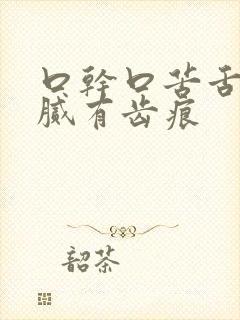 口幹口苦舌
膩有齿痕
韶茶